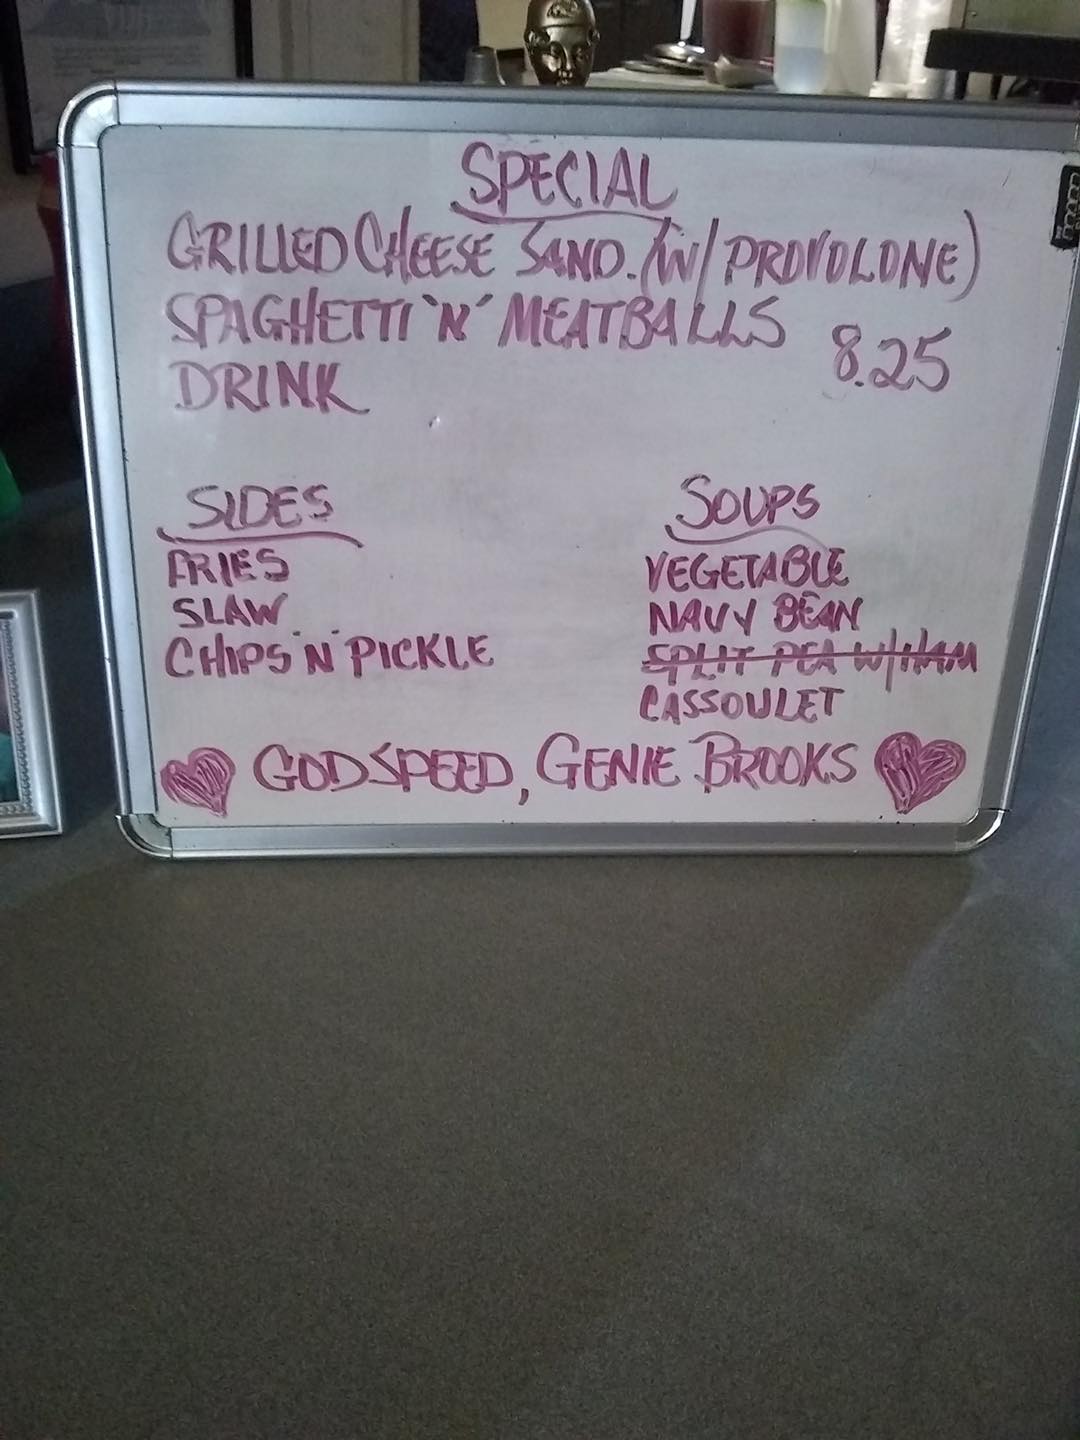 SPECIAL
GRILLED CHEESE SAND. (W/ PROVOLONE)
SPAGHETTI 'N' MEATBALLS
8.25
DRINK
SIDES
FRIES
SLAW
CHIPS 'N' PICKLE
SOUPS
VEGETABLE
NAVY BEAN
SPLIT PEA W/HAM
CASSOULET
GODSPEED, GENIE BROOKS